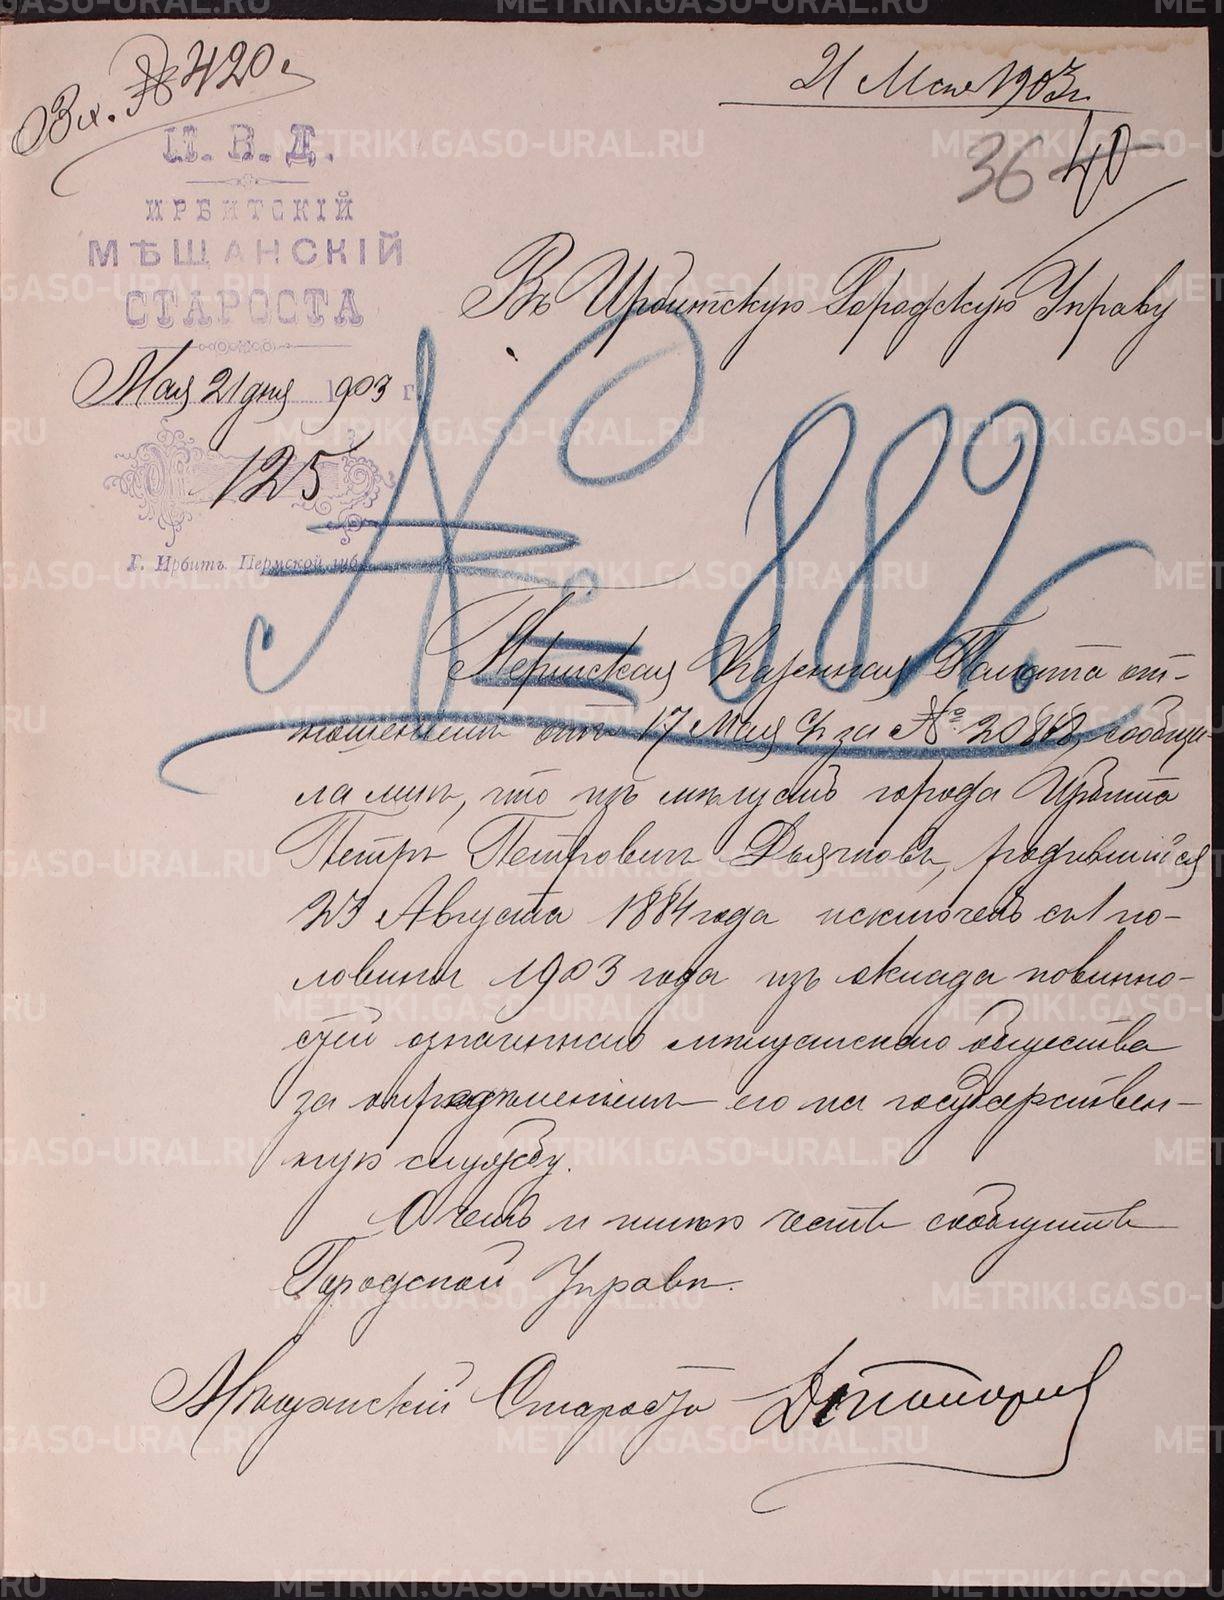 Вх. № 420.
21 Мая 1903 г.
36 40
М. В. Д.
ИРБИТСКІЙ
МѢЩАНСКІЙ
СТАРОСТА
Мая 21 дня 1903 г.
№ 125
Г. Ирбитъ, Пермской губ.
Въ Ирбитскую Городскую Управу
№ 882.
Пермская Казенная Палата от-
ношеніемъ отъ 17 Мая с/г за № 20848, сообщи-
ла мнѣ, что изъ мѣщанъ города Ирбита
Петръ Петровичъ Дьячковъ, родившійся
23 Августа 1884 года исключенъ съ 1 по-
ловины 1903 года изъ оклада повинно-
стей означеннаго мѣщанскаго общества
за опредѣленіемъ его на государствен-
ную службу.
О чемъ и имѣю честь сообщить
Городской Управѣ.
Мѣщанскій Староста
METRIKI.GASO-URAL.RU